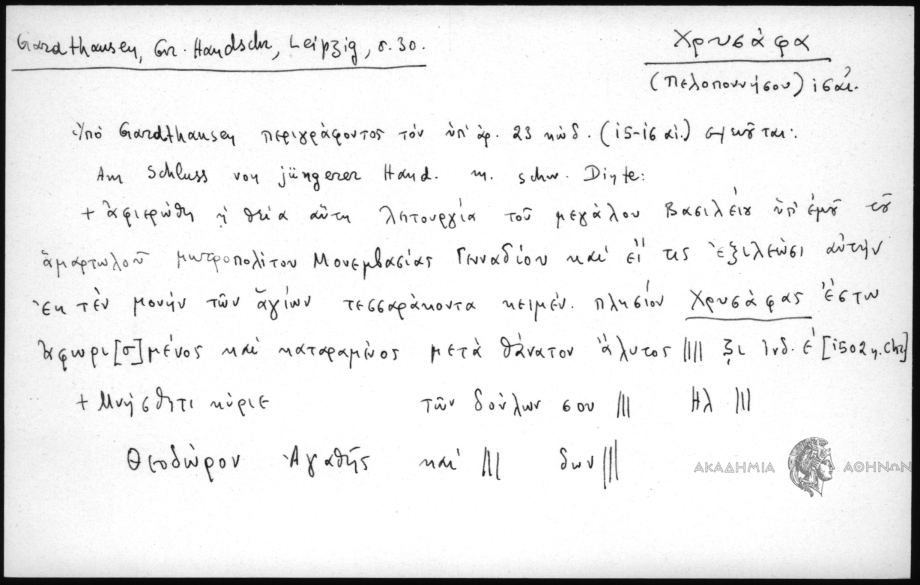 Gardthausen, Gr. Handschr, Leipzig, σ. 30.
Χρυσάφα
(Πελοποννήσου)
Ὑπὸ Gardthausen περιγράφοντος τὸν ὑπ' ἀρ. 23 κώδ. (15-16 αἰ.)
Am Schluss von jüngerer Hand. m. schw. Dinte:
+ Ἀφιερώθη ἡ θεία αὕτη λειτουργία τοῦ μεγάλου Βασιλείου ὑπ' ἐμοῦ τοῦ
ἁμαρτωλοῦ μητροπολίτου Μονεμβασίας Γενναδίου καὶ εἴ τις ἐξιλεώσι αὐτὴν
ἐκ τὲν μονὴν τῶν ἁγίων τεσσαράκοντα κειμέν. πλησίον Χρυσάφας ἔστω
ἀφωρι[σ]μένος καὶ καταραμένος μετὰ θάνατον ἄλυτος |||| ξι Ἰνδ. έ [1502 n. Chr]
+ Μνήσθητι κύριε τῶν δούλων σου ||| Ηλ |||
Θεοδώρου Ἀγαθῆς καὶ ||| δων |||
ΑΚΑΔΗΜΙΑ ΑΘΗΝΩΝ